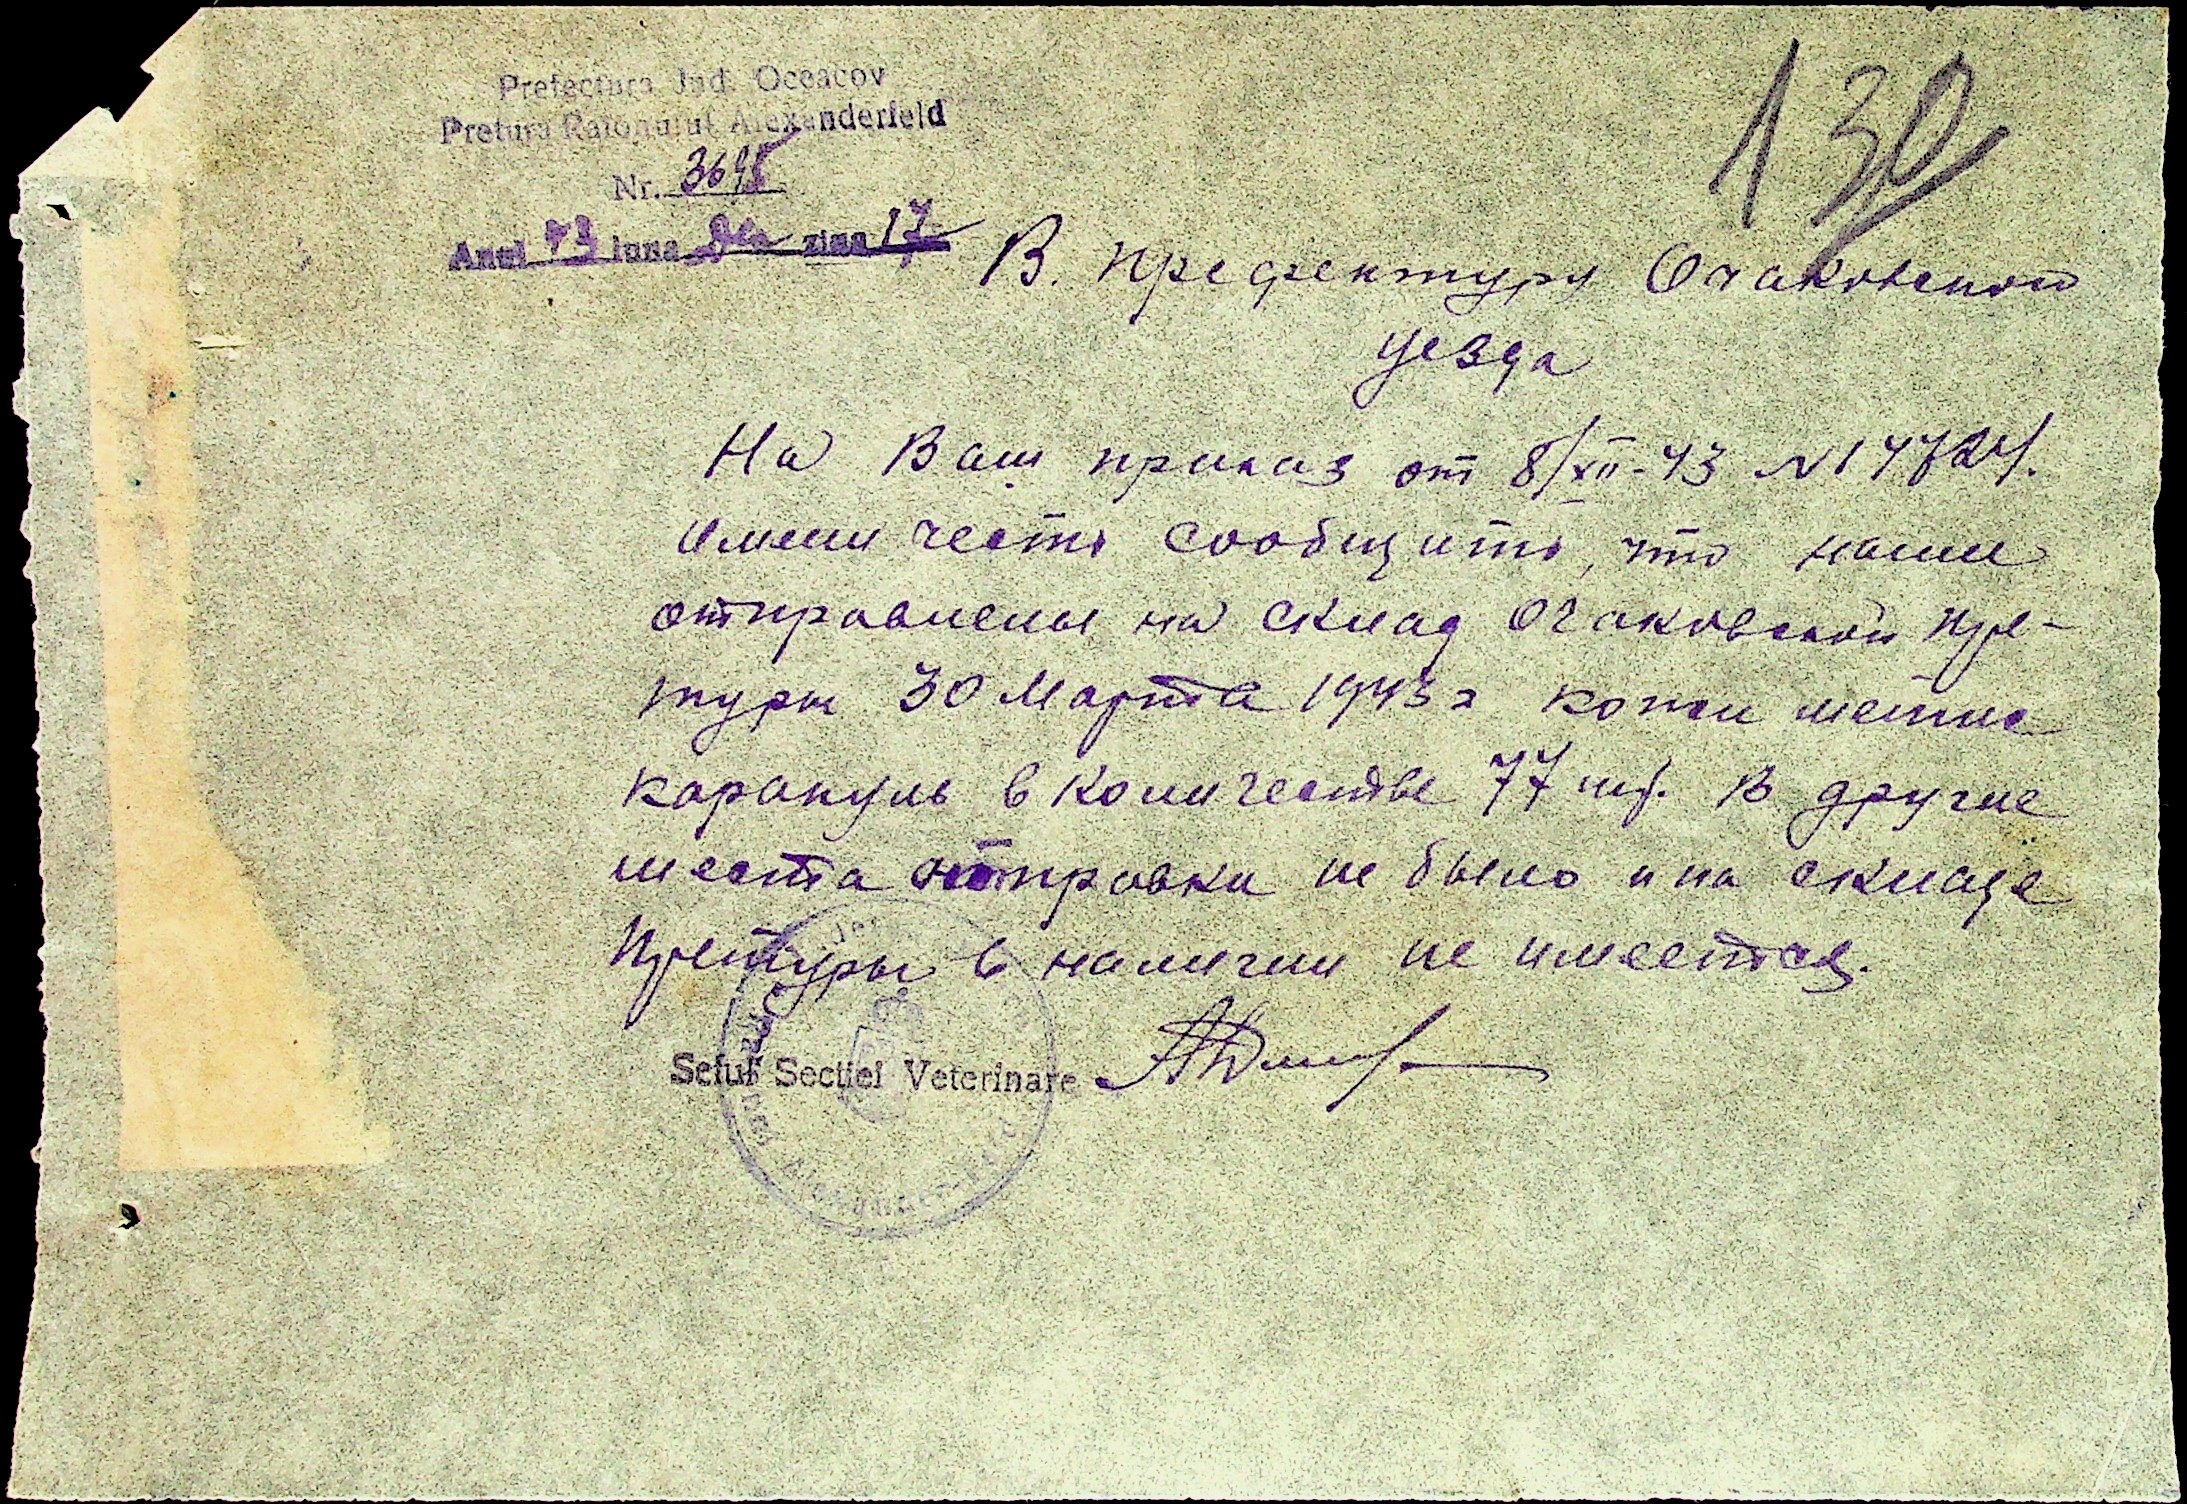 130
Prefectura Jud. Oceacov
Pretura Raionului Alexanderfeld
Nr. 3695
Anul 43 luna Dec ziua 17
В. Префектуру Очаковской
уезда
На Ваш приказ от 8/XII-43 N 14724.
Имеем честь сообщить, что нами
отправлены на склад Очаковской Пре-
туры 30 Марта 1943 г кожи метис
каракуль в количестве 77 шт. В другие
места отправки не было и на складе
Претуры в наличии не имеется.
Seful Sectiei Veterinare